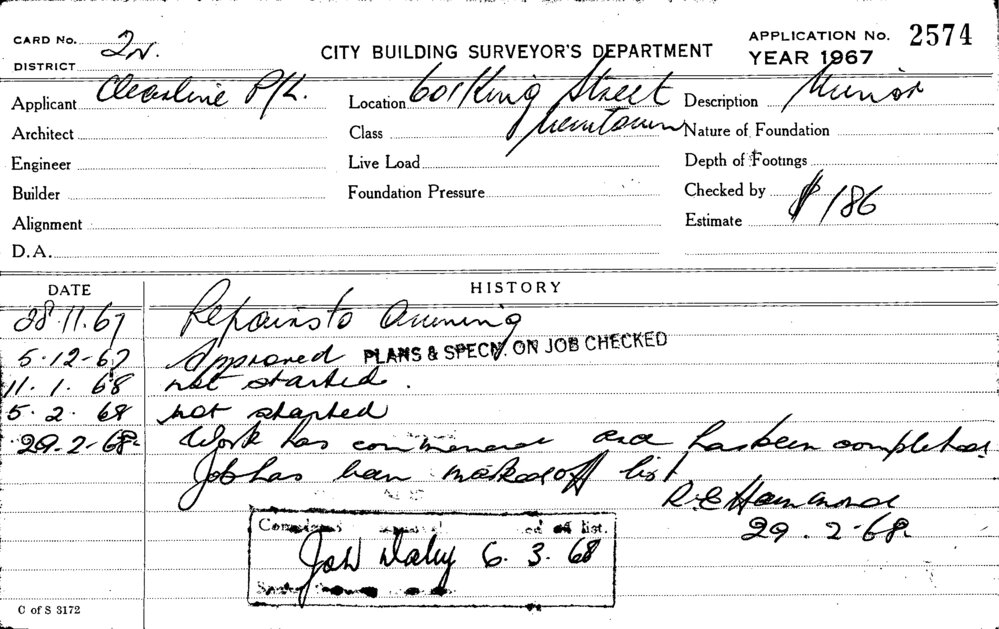 CARD No. 2N.
DISTRICT
CITY BUILDING SURVEYOR'S DEPARTMENT
APPLICATION No. 2574
YEAR 1967
Applicant Clearline P/L.
Location 601 King Street
Newtown
Description Minor
Architect
Class
Nature of Foundation
Engineer
Live Load
Depth of Footings
Builder
Foundation Pressure
Checked by
Alignment
Estimate $186
D.A.
DATE
HISTORY
28.11.67 Repairs to Awning
5.12-67 Approved PLANS & SPECN. ON JOB CHECKED
11.1.68 not started.
5.2.68 not started
29.2-68. Work has commenced and has been completed
Job has been marked off list
R.E. Hammond
29.2-68.
ed off list.
6.3.68
C of S 3172